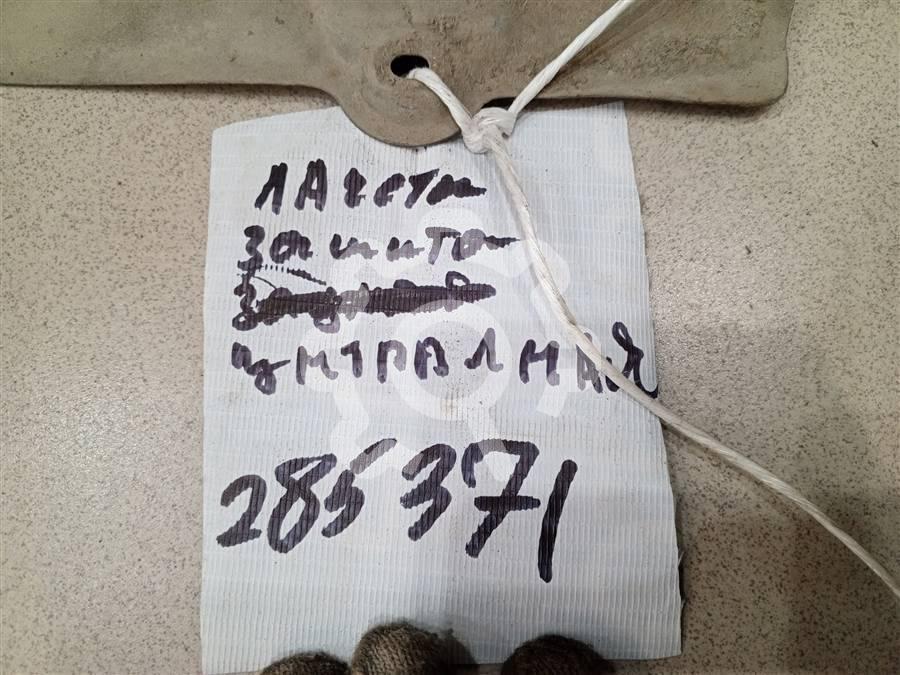 ЛАчети
защита
центрАЛНАЯ
285371